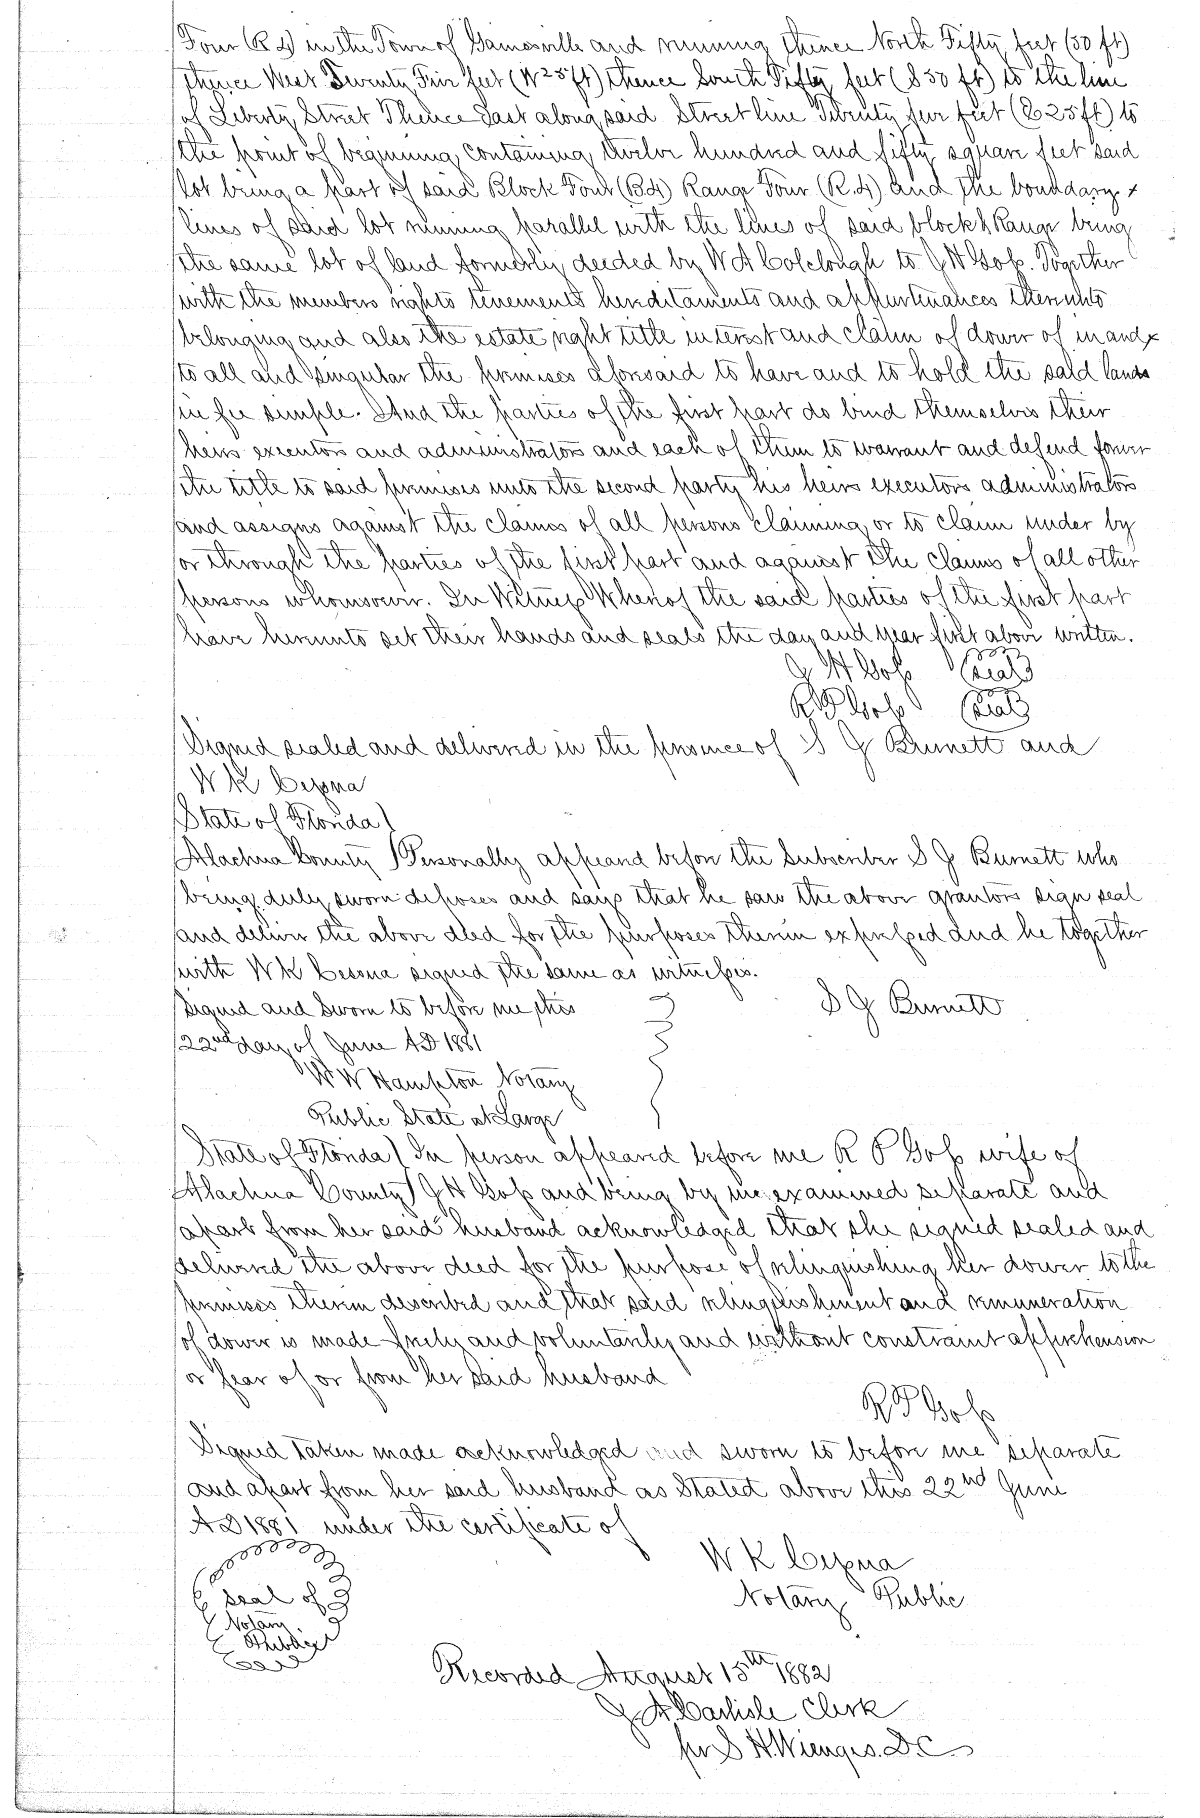 Four (R 4) in the Town of Gainesville and running thence North Fifty feet (50 ft)
thence West Twenty Five feet (W 25 ft) thence South Fifty feet (S 50 ft) to the line
of Liberty Street Thence East along said Street line Twenty five feet (E 25 ft) to
the point of beginning containing twelve hundred and fifty square feet said
lot being a part of said Block Four (B 4) Range Four (R. 4) and the boundary
lines of said lot running parallel with the lines of said block & Range being
the same lot of land formerly deeded by W A Colclough to J H Goss. Together
with the members rights tenements hereditaments and appurtenances thereunto
belonging and also the estate right title interest and claim of dower of in and
to all and singular the premises aforesaid to have and to hold the said lands
in fee simple. And the parties of the first part do bind themselves their
heirs executors and administrators and each of them to warrant and defend forever
the title to said premises unto the second party his heirs executors administrators
and assigns against the claims of all persons claiming or to claim under by
or through the parties of the first part and against the claims of all other
persons whomsoever. In Witness Whereof the said parties of the first part
have hereunto set their hands and seals the day and year first above written.
J H Goss (Seal)
R P Goss (Seal)
Signed sealed and delivered in the presence of S J Burnett and
W K Cessna
State of Florida
Alachua County Personally appeared before the Subscriber S J Burnett who
being duly sworn deposes and says that he saw the above grantors sign seal
and deliver the above deed for the purposes therein expressed and he together
with W K Cessna signed the same as witnesses.
Signed and Sworn to before me this S J Burnett
22nd day of June AD 1881
W W Hampton Notary
Public State at Large
State of Florida In person appeared before me R P Goss wife of
Alachua County J H Goss and being by me examined separate and
apart from her said husband acknowledged that she signed sealed and
delivered the above deed for the purpose of relinquishing her dower to the
premises therein described and that said relinquishment and remuneration
of dower is made freely and voluntarily and without constraint apprehension
or fear of or from her said husband
R P Goss
Signed taken made acknowledged and sworn to before me separate
and apart from her said husband as Stated above this 22nd June
AD 1881 under the certificate of
W K Cessna
Notary Public
Seal of
Notary
Public
Recorded August 15th 1882
J A Carlisle Clerk
per S H. Wienges. D. C.